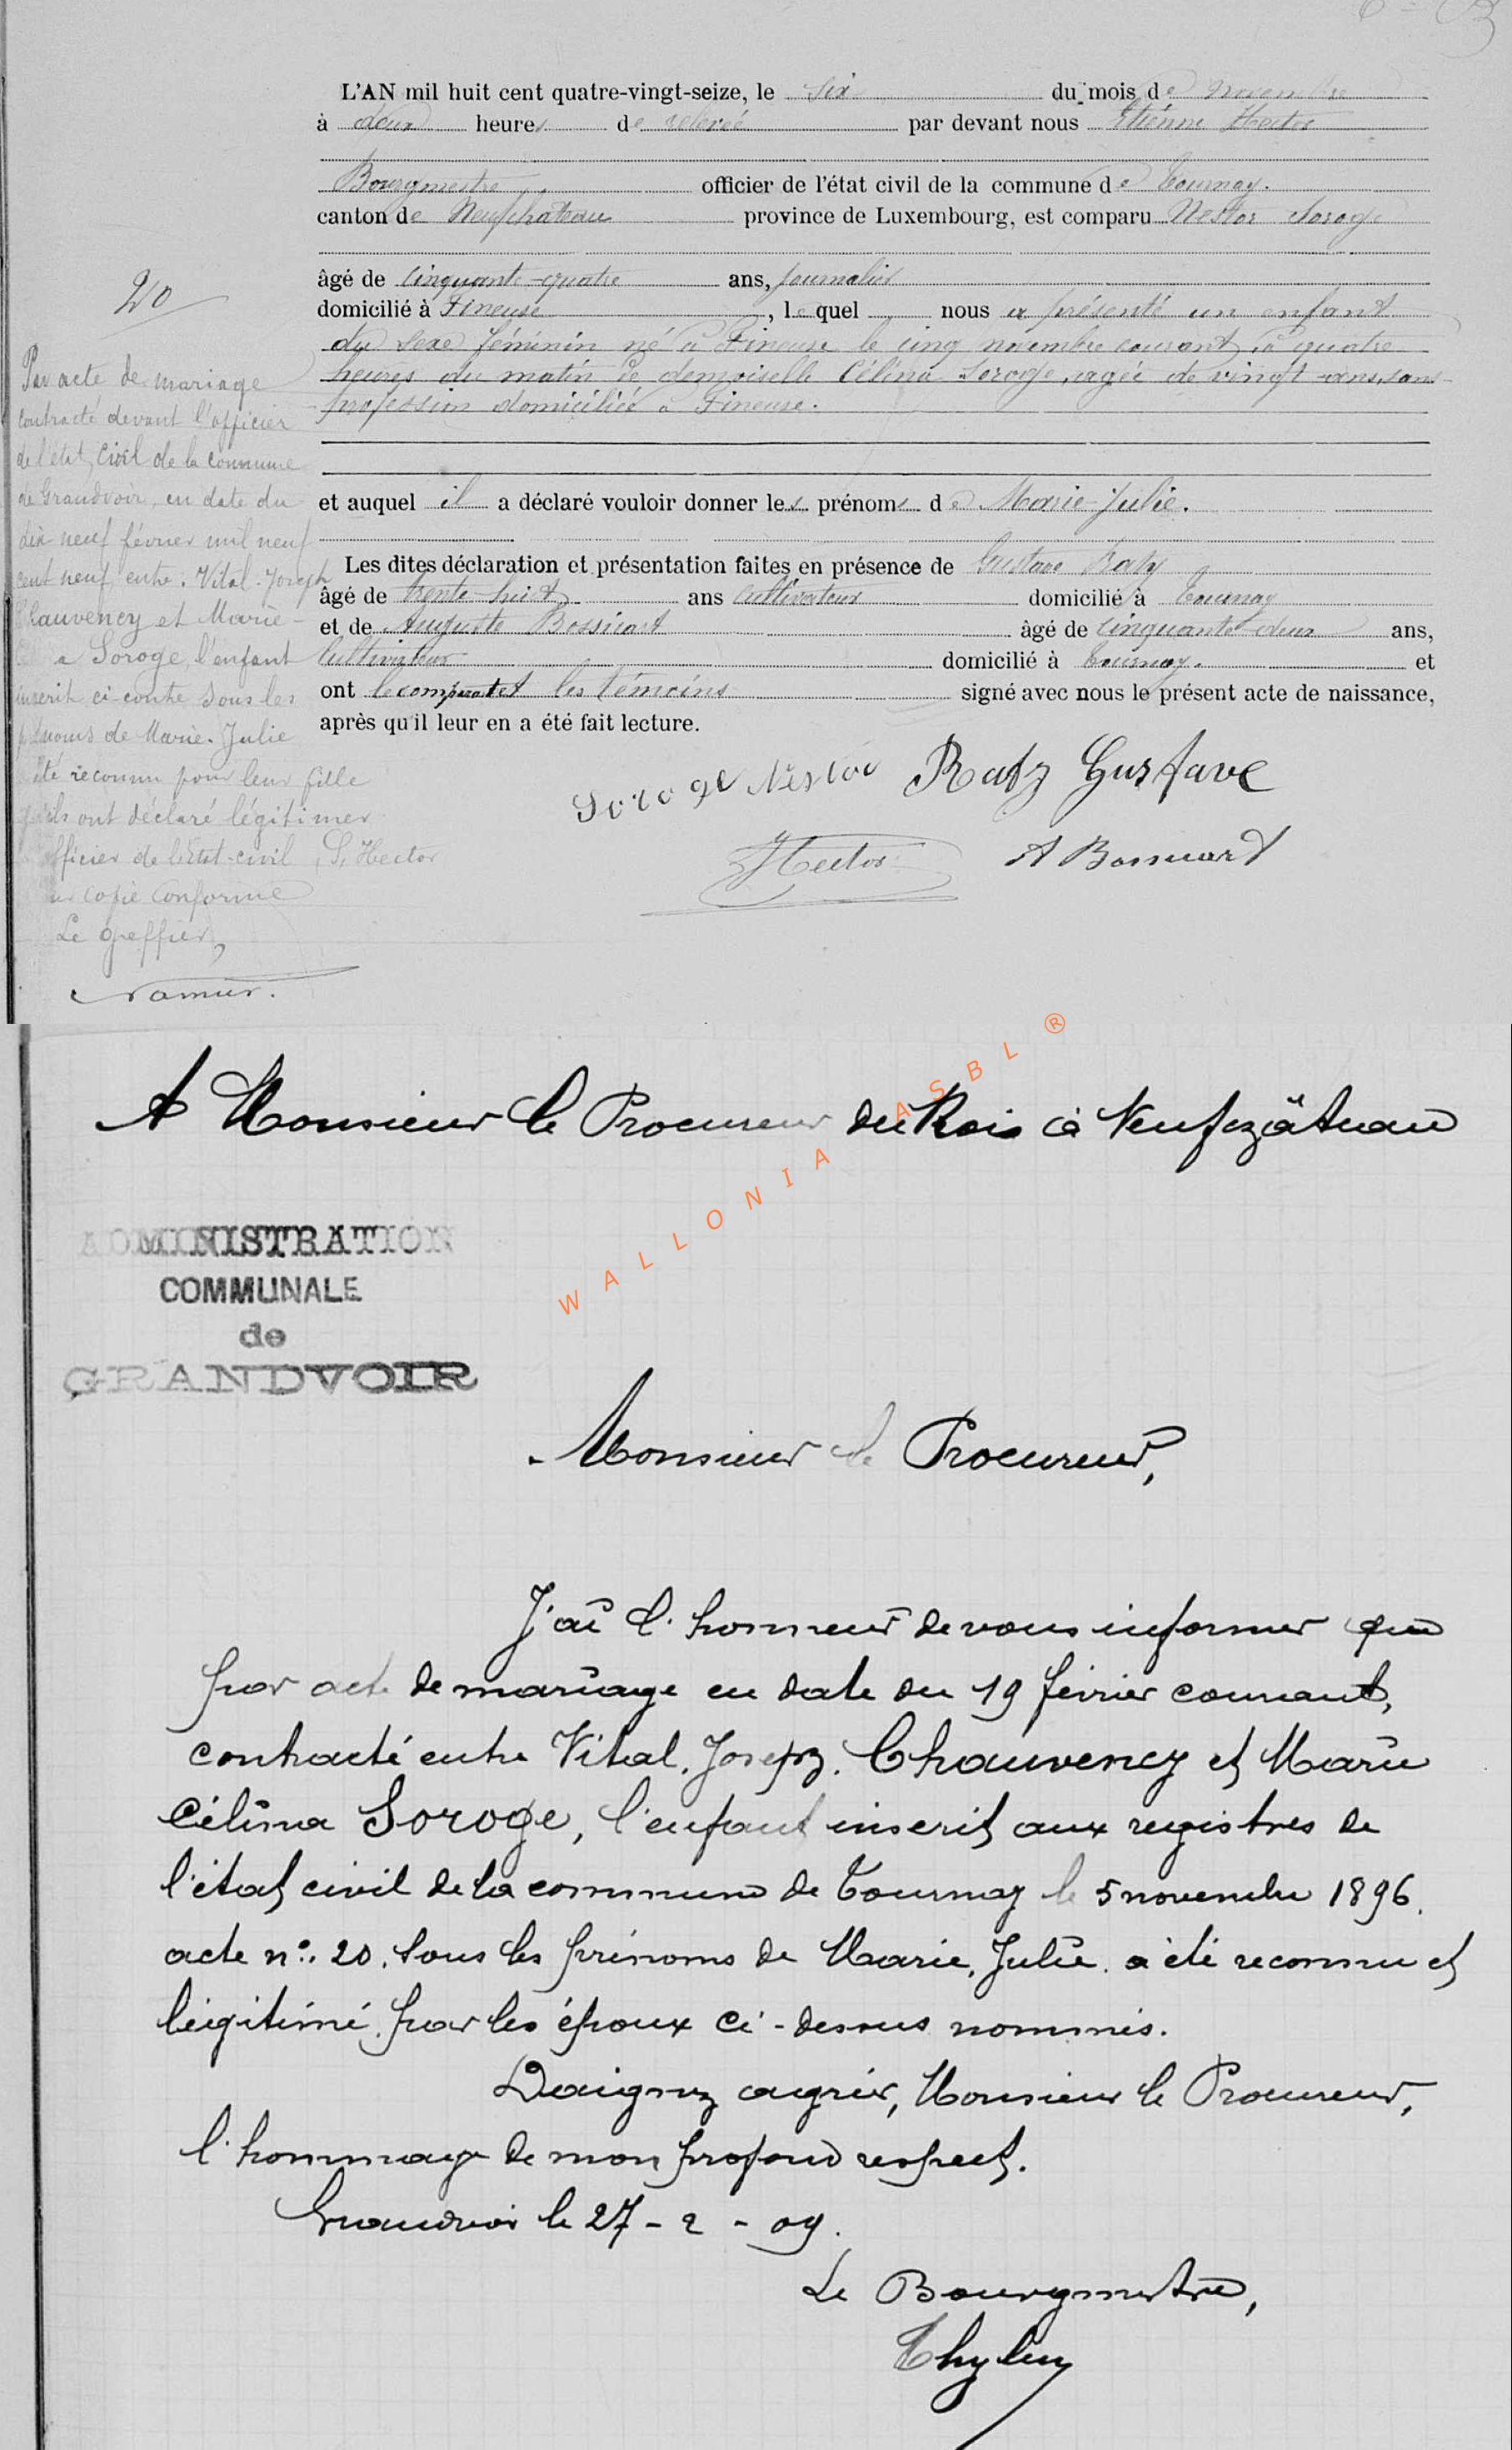 L'AN mil huit cent quatre-vingt-seize, le six du mois de novembre
à deux heures de relevée par devant nous Etienne Hector
Bourgmestre officier de l'état civil de la commune de Tournay.
canton de Neufchâteau province de Luxembourg, est comparu Nestor Soroge
âgé de cinquante-quatre ans, journalier
domicilié à Fineuse, lequel nous a présenté un enfant
du sexe féminin né à Fineuse le cinq novembre courant, à quatre
heures du matin de demoiselle Célina Soroge, agée de vingt ans, sans
profession domiciliée à Fineuse.
et auquel il a déclaré vouloir donner les prénoms de Marie-Julie.
Les dites déclaration et présentation faites en présence de Gustave Raty
âgé de trente-huit ans cultivateur domicilié à Tournay
et de Auguste Bossicart âgé de cinquante-deux ans,
cultivateur domicilié à Tournay. et
ont le comparant et les témoins signé avec nous le présent acte de naissance,
après qu'il leur en a été fait lecture.
Soroge Nestor Raty Gustave
Hector A Bossicart
20
Par acte de mariage
contracté devant l'officier
de l'état civil de la commune
de Grandvoir, en date du
dix-neuf février mil neuf
cent neuf entre : Vital-Joseph
Chauvency et Marie-
a Soroge, l'enfant
inscrit ci-contre sous les
prénoms de Marie-Julie
été reconnu pour leur fille
qu'ils ont déclaré légitimer
officier de l'Etat-civil, S, Hector
copie conforme
Le greffier,
Namur.
A Monsieur le Procureur du Roi à Neufchâteau
WALLONIA ASBL ®
ADMINISTRATION
COMMUNALE
de
GRANDVOIR
Monsieur le Procureur,
J'ai l'honneur de vous informer que
par acte de mariage en date du 19 février courant,
contracté entre Vital. Joseph. Chauvency et Marie
Célina Soroge, l'enfant inscrit aux registres de
l'état civil de la commune de Tournay le 5 novembre 1896.
acte n°. 20. sous les prénoms de Marie. Julie. a été reconnu et
légitimé par les époux ci-dessus nommés.
Daignez agréer, Monsieur le Procureur,
l'hommage de mon profond respect.
Grandvoir le 27 - 2 - 09.
Le Bourgmestre,